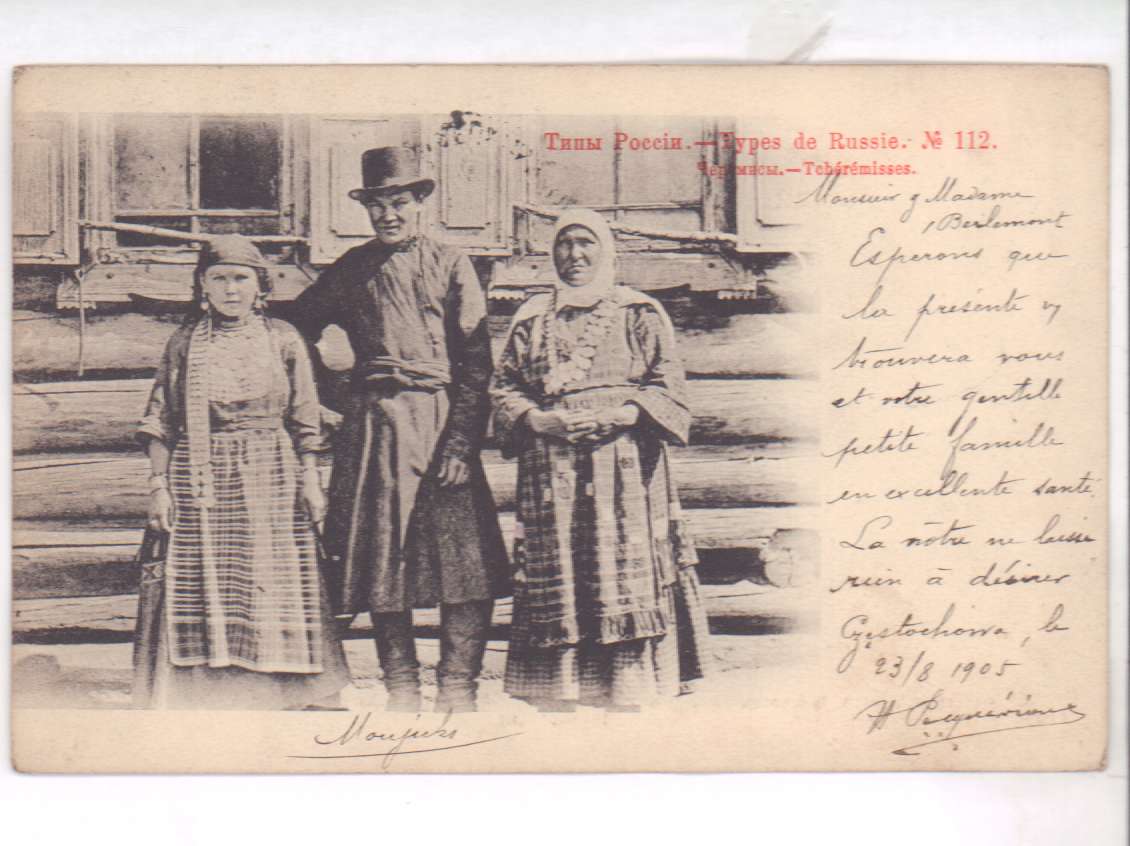 Типы Россіи.—Types de Russie. № 112.
Черемисы.—Tchérémisses.
Monsieur & Madame
Berlemont
Esperons que
la présente y
trouvera vous
et votre gentille
petite famille
en excellente santé.
La nôtre ne laisse
rien à désirer
Częstochowa, le
23/8 1905
Moujicks